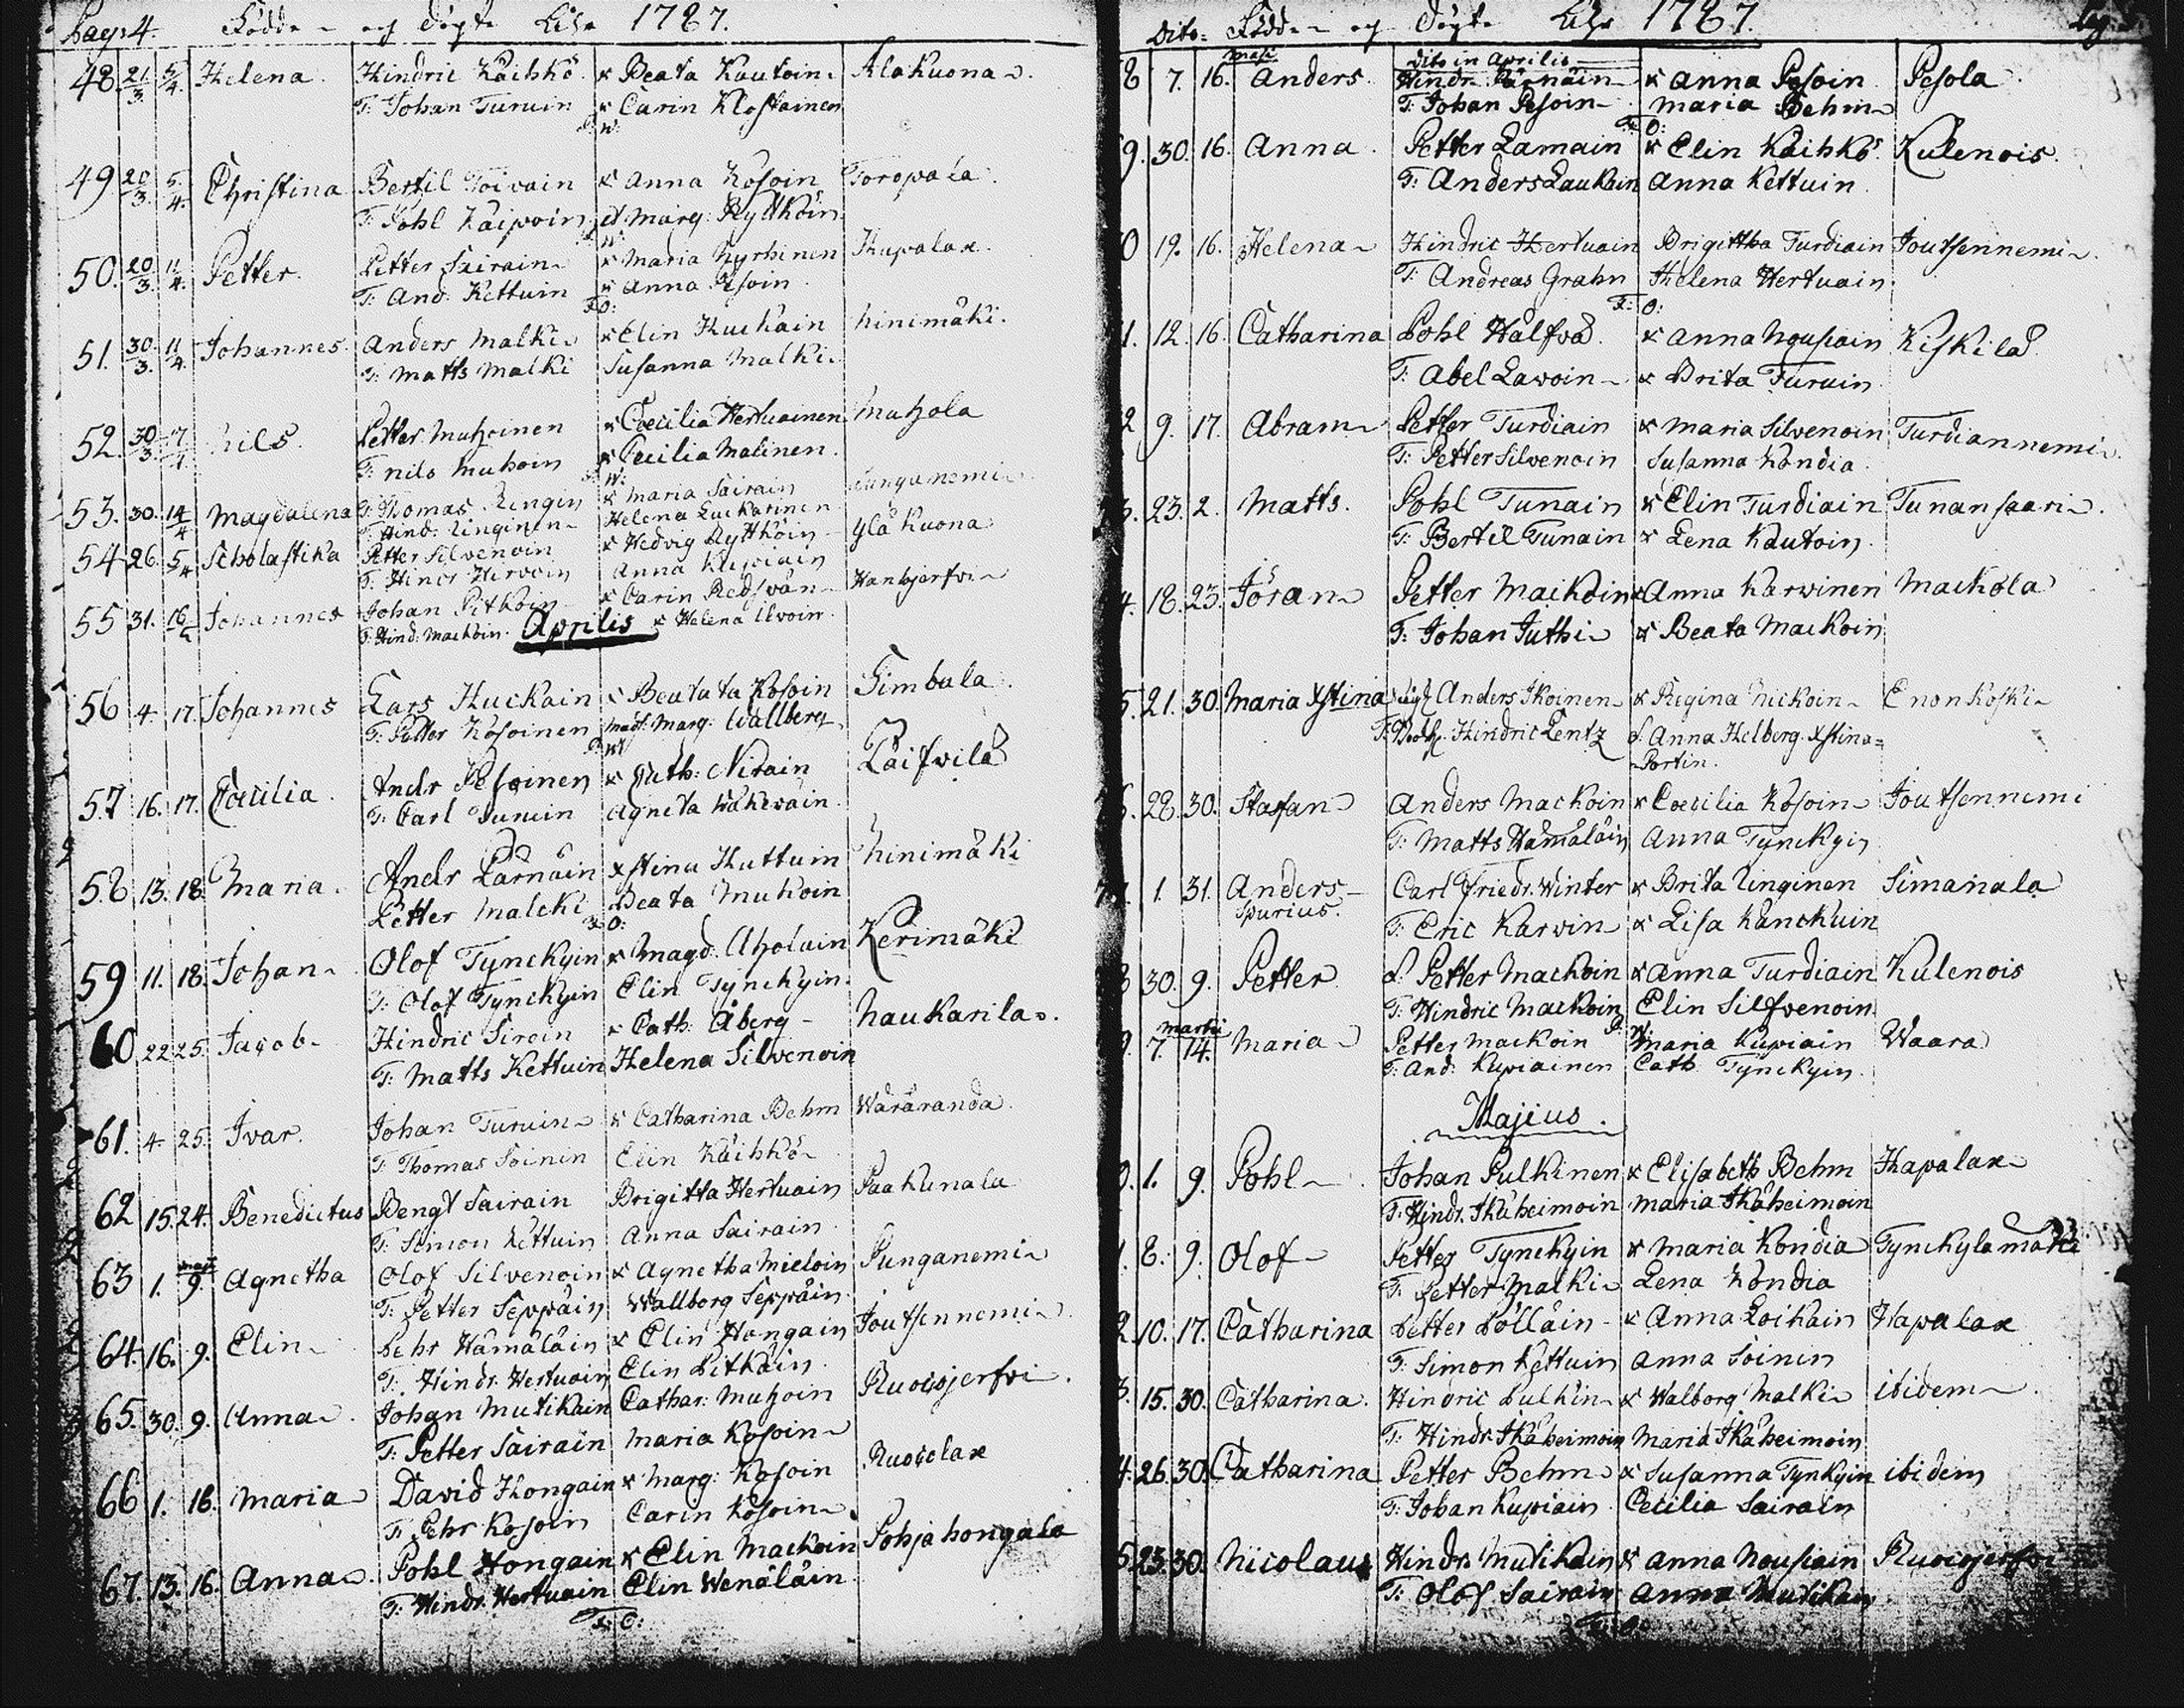 Pag: 4. Födde och Döpte Åhr 1787.
48. 21/3. 5/4. Helena. Hindric Käihkö. x Beata Kautoin. Alakuona.
T: Johan Turuin x Carin Klostainen
49 20/3. 5/4. Christina Bertil Toivain x Anna Kosoin Toropala.
T: Pohl Käipoin et Marg: Ryttköin.
50. 20/3. 11/4. Petter. Petter Sairain x Maria Hyrhinen Hapalax.
T: And: Kettuin x Anna Pesoin
T: O:
51. 30/3. 11/4. Johannes. Anders Malki x Elin Huckain Ninimäki.
T: Matts Malki Susanna Malki
52. 30/3. Nils. Petter Muhoinen x Coecilia Hertuainen Muhola
T: Nils Muhoin x Cecilia Matinen.
53. 30. 14/4 Magdalena Thomas Lingin x Maria Sairain
T: Hind: Linginen Helena Luckarinen
54 26. 5/4 Scholastika Petter Silvenoin x Hedvig Ryttköin Ylä Kuona
T: Hindr Hirvoin Anna Kupiain
55 31. 16/4 Johannes Johan Pitkoin x Carin Redsvän Hanhjerfvi
T: Hind: Mackoin. x Helena Ilvoin.
Aprilis
56 4. 17. Johannes Lars Huckain x Beata Kosoin Simbala.
T: Petter Kosoinen Mad: Marg: Wallberg
57 16. 17. Coecilia. Andr Pesoinen x Cath: Nirain Laifvila
T: Carl Turuin Agneta Wäkeväin.
58. 13. 18. Maria. Andr Pärnäin xstina Huttuin Ninimäki
Petter Malcki Beata Muhoin
T: O:
59 11. 18. Johan Olof Tynckyin x Magd: Aholain Kerimäki
T: Olof Tynckyin Elin Tynckyin.
60 22 25. Jacob Hindric Siroin x Cath: Åberg Naukarila.
T: Matts Kettuin Helena Silvenoin
61. 4. 25. Ivar. Johan Turuin x Catharina Behm Wäräranda.
T: Thomas Soinin Elin Käihkö
62 15. 24. Benedictus Bengt Sairain Brigitta Hertuain Paakunala
T: Simon Kettuin Anna Sairain
63 1. maji 9. Agnetha Olof Silvenoin x Agnetha Mieloin Punganemi
T: Petter Seppäin Wallborg Seppäin
64. 16. 9. Elin Pehr Hämäläin x Elin Hongain Joutsennemi
T: Hindr. Hertuain Elin Pitkäin.
65. 30. 9. Anna. Johan Mutikain Cathar: Muhoin Ruocojerfvi.
T: Petter Sairain Maria Kosoin
66 1. 16. Maria David Hongain x Marg: Kosoin Ruocolax
T: Pehr Kosoin Carin Kosoin
67. 13. 16. Anna. Pohl Hongain x Elin Mackoin Pohjahongala
T: Hindr. Hertuain Elin Wenäläin.
T: O:
Dito: Födde och Döpte Åhr 1787.
Dito in Aprilis
8 7. maji 16. Anders. Hindr. Pärnäin x Anna Pesoin Pesola
T: Johan Pesoin Maria Behm
T: O:
9. 30. 16. Anna. Petter Lamain x Elin Käihkö. Kulenois.
T: Anders Laukain Anna Kettuin.
0 19. 16. Helena Hindric Hertuain Brigittha Turdiain Joutsennemi.
T: Andreas Grahn Helena Hertuain.
T: O:
1. 12. 16. Catharina Pohl Halfva. x Anna Nousiain Kiskila
T: Abel Lavoin x Brita Turuin.
2 9. 17. Abram Petter Turdiain x Maria Silvenoin Turdiannemi.
T: Petter Silvenoin Susanna Kondia.
3. 23. 2. Matts. Pohl Tunain x Elin Turdiain Tunansaari.
T: Bertil Tunain x Lena Kautoin.
4. 18. 23. Jöran Petter Mackoin x Anna Karvinen Mackola
T: Johan Juthi x Beata Mackoin
5. 21. 30. Maria Xstina Anders Ikoinen x Regina Nickoin Enonkoski
Hindric Lentz d. Anna Helberg. Xstina
Portin.
28. 30. Staffan Anders Mackoin x Coecilia Kosoin Joutsennemi
T: Matts Hämäläin Anna Tynckyin
1. 31. Anders Carl Friedr. Winter x Brita Linginen Simanala
Spurius. T: Eric Karvin x Lisa Känckuin
8 30. 9. Petter d. Petter Mackoin x Anna Turdiain Kulenois
T: Hindric Mackoin Elin Silfvenoin
martii
9. 7. 14. Maria Petter Mackoin Maria Kupiain Waara
T: And: Kupiainen Cath: Tynckyin.
Majius.
0. 1. 9. Pohl Johan Pulkinen x Elisabeth Behm Hapalax
T: Hindr. Ikäheimoin Maria Ikäheimoin
1. 8. 9. Olof Petter Tynckyin x Maria Kondia Tynckylämäki
T: Petter Malki Lena Kondia
2. 10. 17. Catharina Petter Pölläin x Anna Loikain Hapalax
T: Simon Kettuin Anna Soinin
3. 15. 30. Catharina. Hindric Pulkin x Walborg Malki ibidem
T: Hindr. Ikäheimoin Maria Ikäheimoin
4. 26. 30. Catharina Petter Behm x Susanna Tynkyin ibidem
T: Johan Kupiain Cecilia Sairain
5. 23. 30. Nicolaus Hindr. Mutikain x Anna Nousiain Ruocojerfvi
T: Olof Sairain Anna Mutikain
T: O: